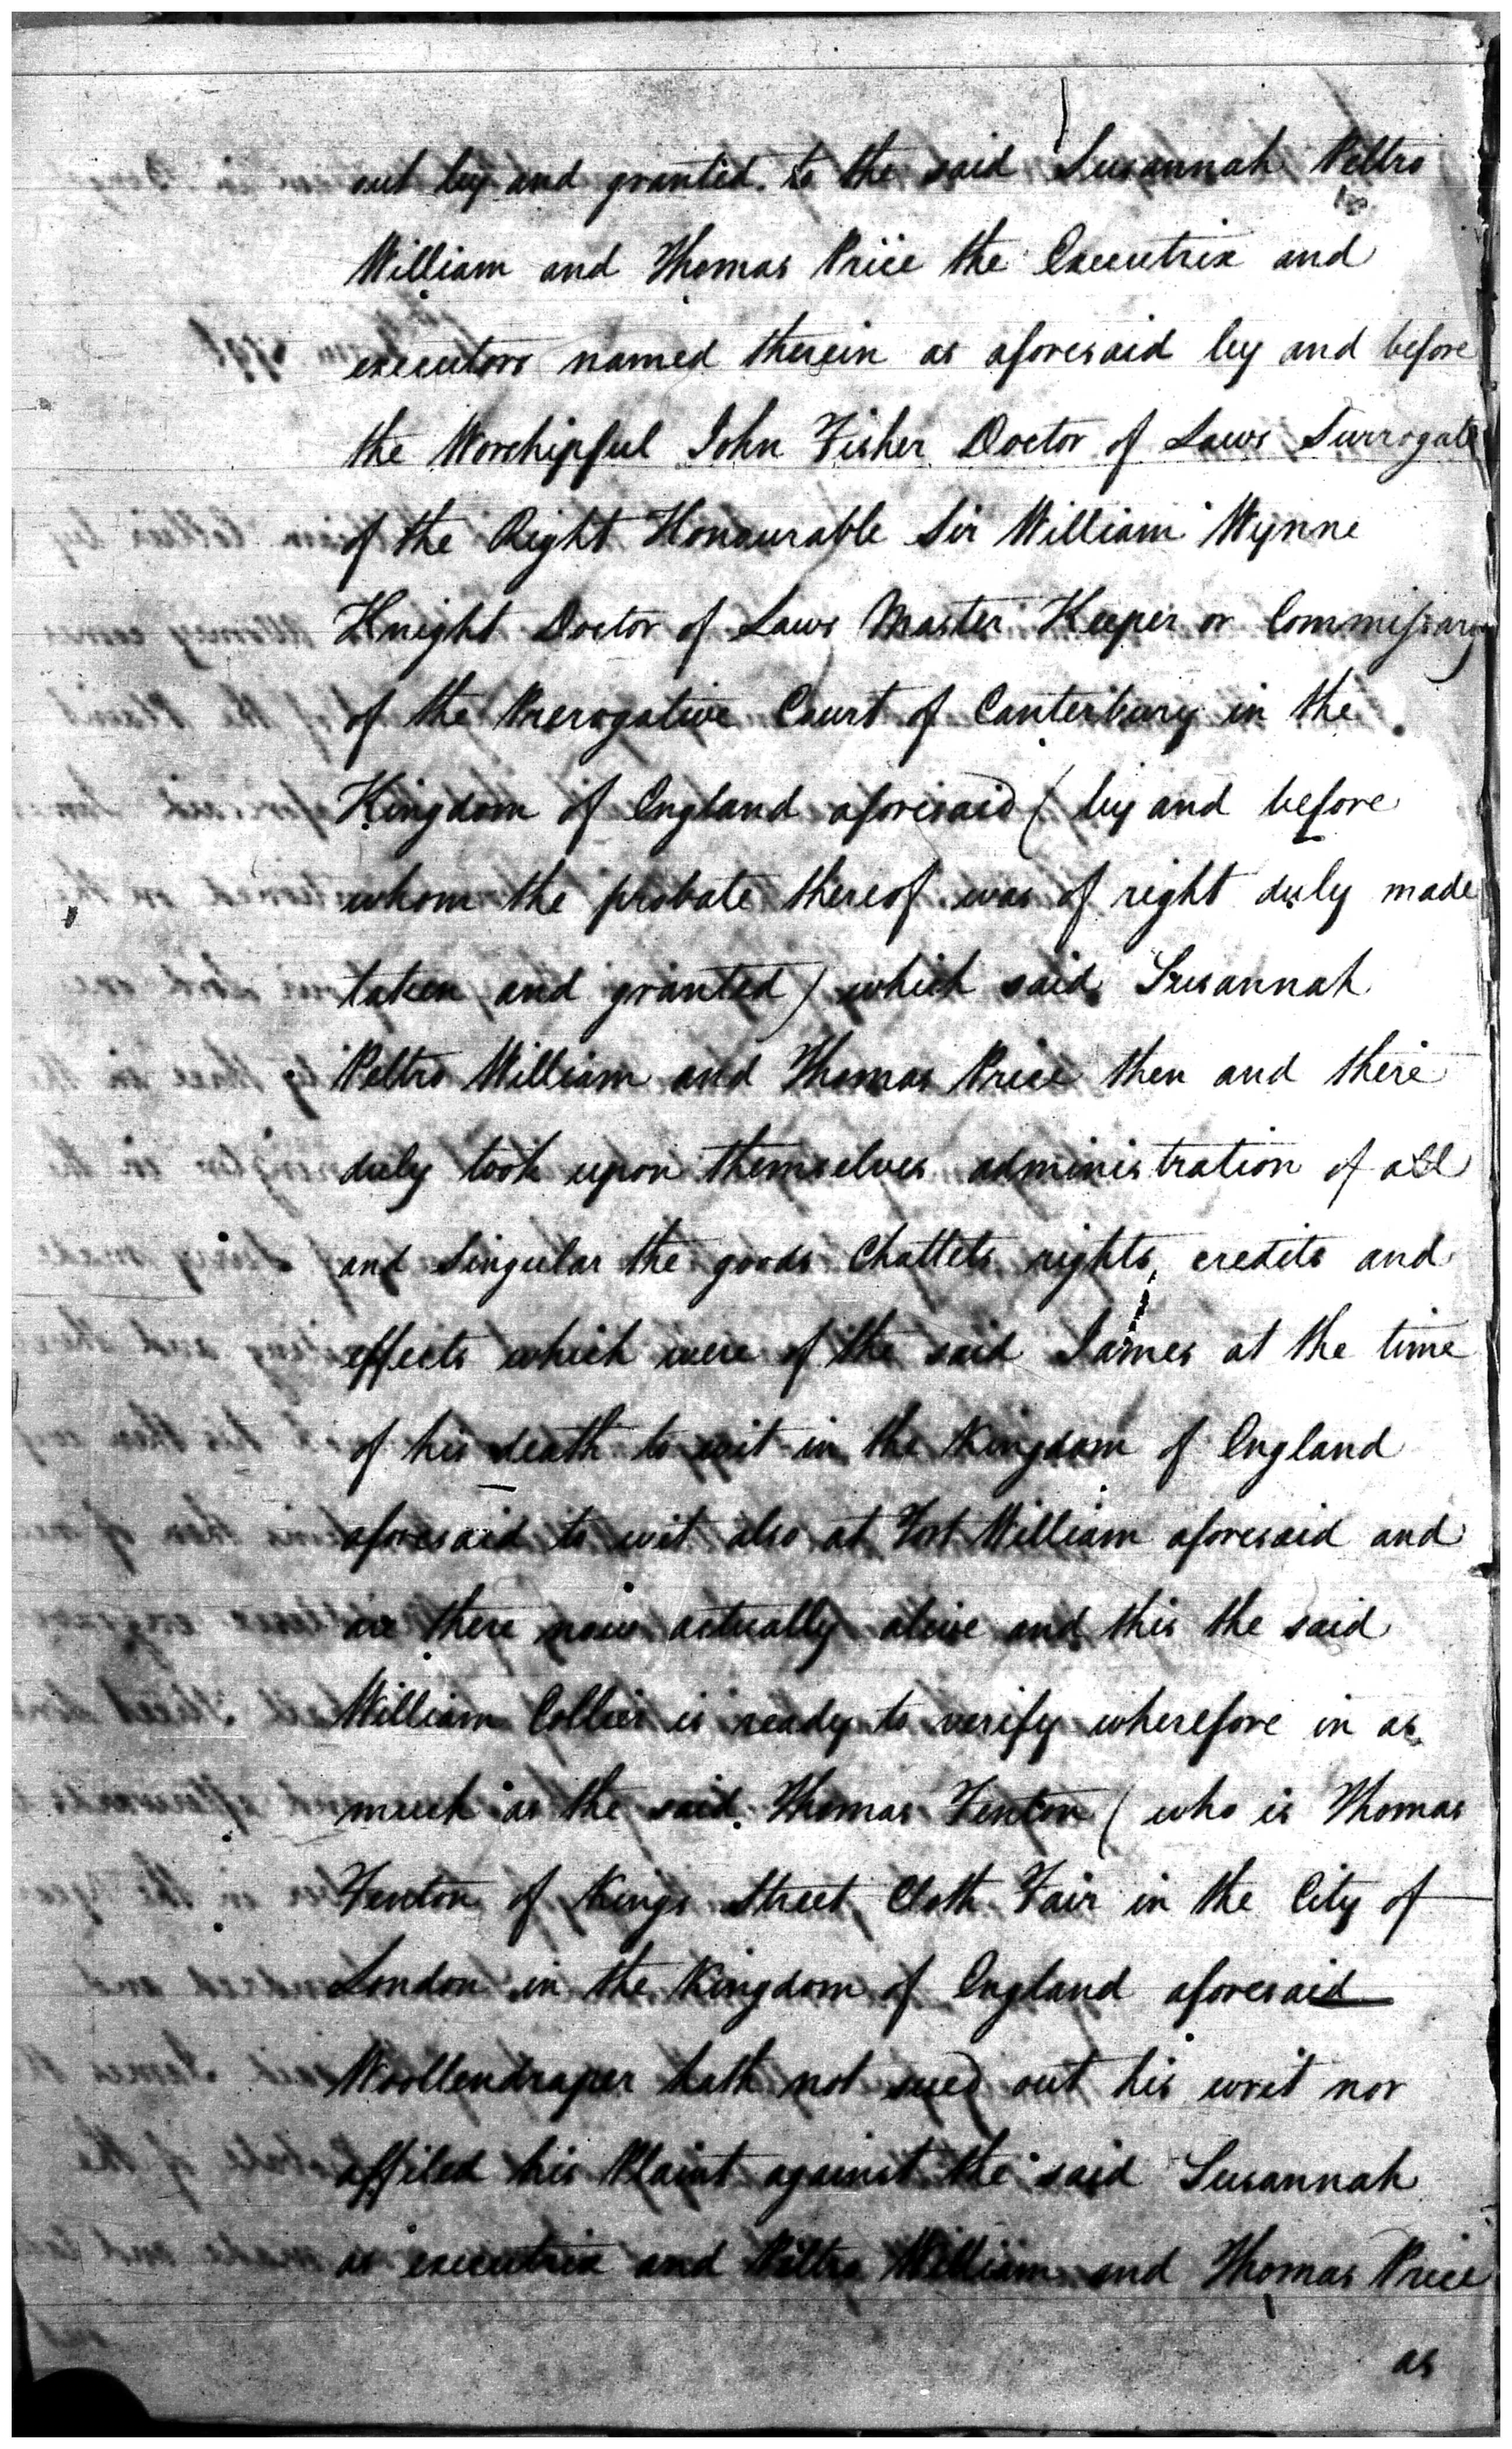 out by and granted to the said Susannah Peltro
William and Thomas Price the Executrix and
executors named therein as aforesaid by and before
the Worshipful John Fisher Doctor of Laws Surrogate
of the Right Honourable Sir William Wynne
Knight Doctor of Laws Master Keeper or Commissary
of the Prerogative Court of Canterbury in the
Kingdom of England aforesaid (by and before
whom the probate thereof was of right duly made
taken and granted) which said Susannah
Peltro William and Thomas Price then and there
duly took upon themselves administration of all
and Singular the goods Chattels rights credits and
effects which were of the said James at the time
of his death to wit in the Kingdom of England
aforesaid to wit also at Fort William aforesaid and
are there now actually alive and this the said
William Collier is ready to verify wherefore in as
much as the said Thomas Fenton (who is Thomas
Fenton of Kings Street Cloth Fair in the City of
London in the Kingdom of England aforesaid
Woollendraper hath not sued out his writ nor
affiled his Plaint against the said Susannah
as executrix and Peltro William and Thomas Price
as